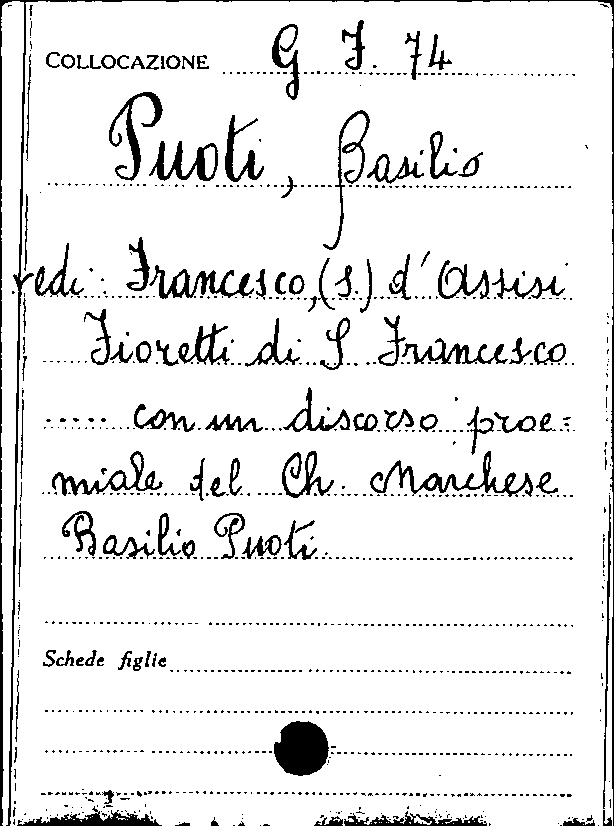 COLLOCAZIONE G J. 74
Puoti, Basilio
vedi: Francesco,(s.) d'Assisi
Fioretti di S Francesco
..... con un discorso proe=
miale del Ch. Marchese
Basilio Puoti.
Schede figlie